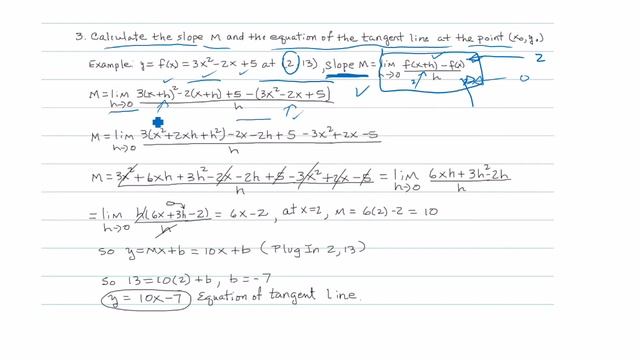 3. Calculate the slope M and the equation of the tangent line at the point (x₀, y₀)
Example: y = f(x) = 3x² - 2x + 5 at (2, 13), slope M = lim h→0 f(x+h) - f(x) / h 2
0
M = lim h→0 3(x+h)² - 2(x+h) + 5 - (3x² - 2x + 5) / h
M = lim h→0 3(x² + 2xh + h²) - 2x - 2h + 5 - 3x² + 2x - 5 / h
M = 3x² + 6xh + 3h² - 2x - 2h + 5 - 3x² + 2x - 5 / h = lim h→0 6xh + 3h² - 2h / h
= lim h→0 h(6x + 3h - 2) / h = 6x - 2, at x = 2, M = 6(2) - 2 = 10
So y = Mx + b = 10x + b (Plug In 2, 13)
So 13 = 10(2) + b, b = -7
y = 10x - 7 Equation of tangent line.